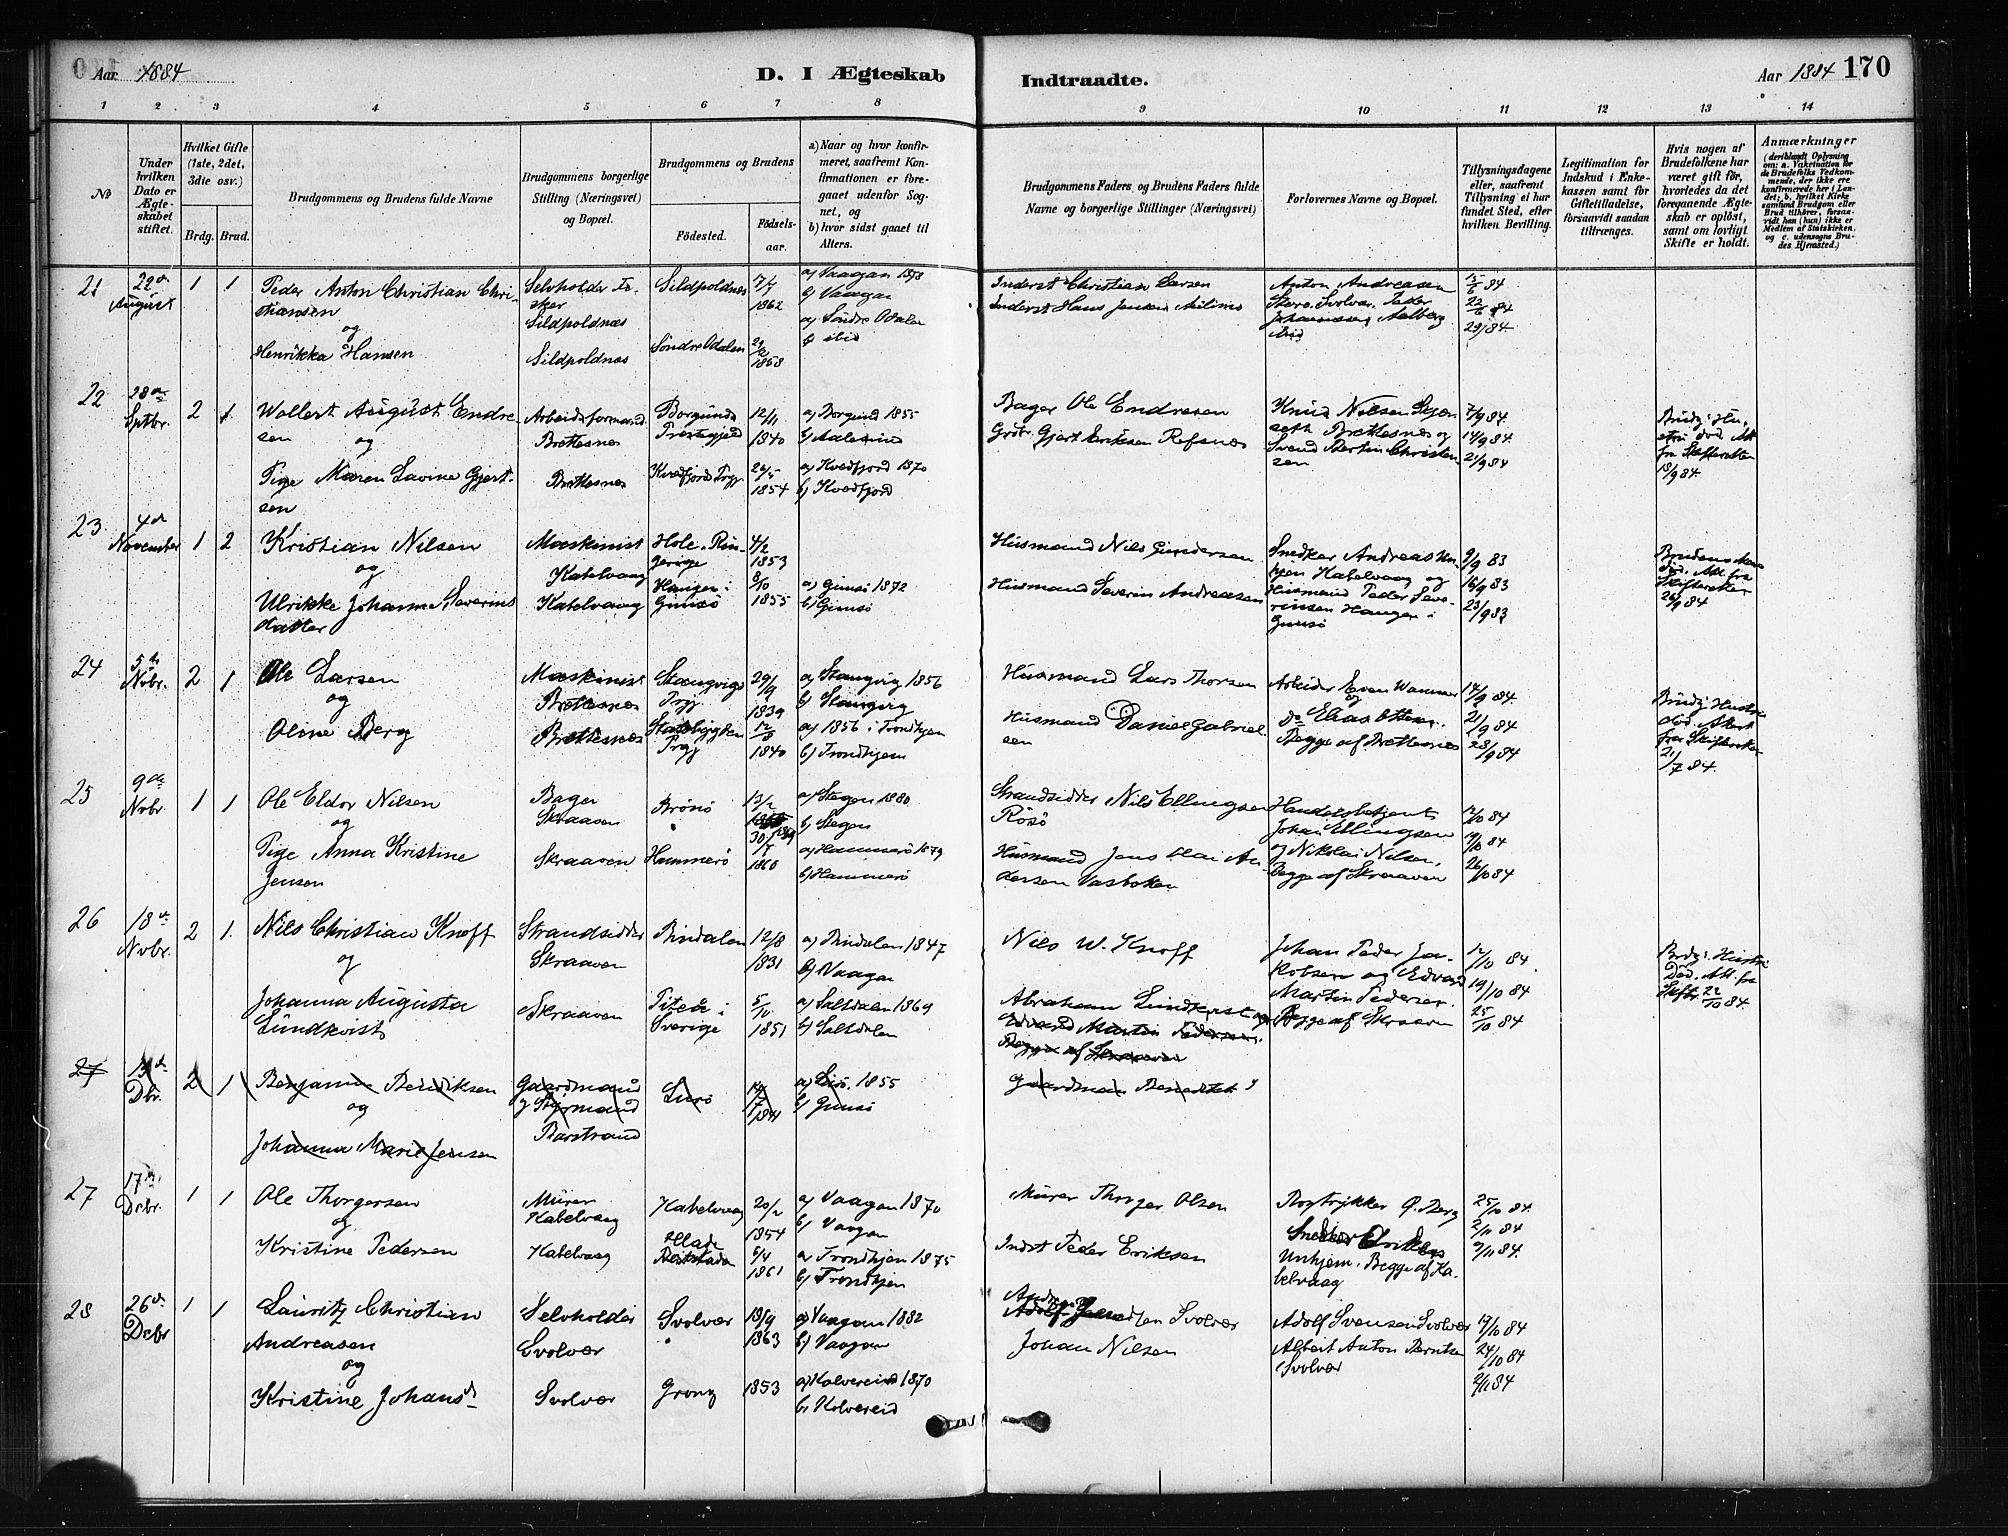 Aar 1884
D. I Ægteskab
Indtraadte.
Aar 1884 170
1 2 3 4 5 6 7 8 9 10 11 12 13 14
No
Under hvilken Dato er Ægteskabet stiftet.
Hvilket Gifte (1ste, 2det, 3die osv.)
Brdg. Brud.
Brudgommens og Brudens fulde Navne
Brudgommens borgerlige Stilling (Næringsvei) og Bopæl.
Brudgommens og Brudens
Fødested.
Fødselsaar.
a) Naar og hvor konfirmeret, saafremt Konfirmationen er foregaaet udenfor Sognet, og
b) hvor sidst gaaet til Alters.
Brudgommens Faders og Brudens Faders fulde Navne og borgerlige Stillinger (Næringsvei)
Forlovernes Navne og Bopæl.
Tillysningsdagene eller, saafremt Tillysning ei har fundet Sted, efter hvilken Bevilling.
Legitimation for Indskud i Enkekassen samt for Giftetilladelse, forsaavidt saadan tiltrænges.
Hvis nogen af Brudefolkene har været gift før, hvorledes da det foregaaende Ægteskab er opløst, samt om lovligt Skifte er holdt.
Anmærkninger
(deriblandt Oplysning om: a. Vakcination for de Brudefolks Vedkommende, der ikke ere konfirmerede her i Landet; b. hvilket Kirkesamfund Brudgom eller Brud tilhører, forsaavidt han (hun) ikke er Medlem af Statskirken, og c. udensogns Brudes Hjemsted.)
21 22de August 1 1
Peder Anton Christian Christiansen
og
Henrikka Hansen
Selvholder Fisker
Sildpoldnæs
Sildpoldnæs
Sildpoldnæs
Søndre Odalen
17/7 1862
1858
a) Vaagan 1878
b) Vaagan
a) Søndre Odalen
b) ibid
Inderst Christian Larsen
Inderst Hans Jensen
Anton Andreasen
Svolvær. Peder
Aalberg
ibid
15/6 84
22/6 84
29/84
22 28de Septbr. 2 1
Wollert August Endresen
og
Pige Maren Lavine Gjertsen
Arbeidsformand
Brettesnes
Brettesnes
Borgunds Prestegjeld
Kvæfjord Prgj
12/11 1840
26/5 1854
a) Borgund 1855
b) Aalesund
a) Kvedfjord 1870
b) Kvedfjord
Bager Ole Endresen
Grbr. Gjert Eriksen Refsnæs
Knud Nilsen
Brettesnæs og
Svend Bertin Christensen
7/9 84
14/9 84
21/9 84
Brudg: Hustru død. Att fra Skifteretten
18/9 84.
23 4de November 1 2
Kristian Nilsen
og
Ulrikke Johanna Severinsdatter
Maskinist
Kabelvaag
Kabelvaag
Hole. Ringerige
Hangen i Gimsø
4/2 1853
8/10 1855
a) Gimsø 1872
b) Gimsø
Husmand Nils Gundersen
Husmand Severin Andreasen
Snedker Andreas
Kabelvaag og
Husmand Peder Severinsen Hangen i
Gimsø
9/9 83
16/9 83
23/9 83
død. Att fra
Skifteretten
26/9 84
24 5te Nvbr. 2 1
Ole Larsen
og
Oline Berg
Maskinist
Brettesnæs
Brettesnæs
Stangvigs Prgj
Prgj
29/9 1839
1840
a) Stangvig 1856
b) Stangvig
a) 1856 i Trondhjem
b) Trondhjem
Husmand Lars Thorsen
Husmand Daniel Gabrielsen
Arbeider Even Wammer
og
do Elias Ottesen.
Begge af Brettesnæs
14/9 84.
21/9 84
28/9 84
Brudg: Hustru død. Attest fra Skifteretten
21/7 84.
25 9de Nvbr. 1 1
Ole Eldor Nilsen
og
Pige Anna Kristine
Jensen
Bager
Skraaven
Skraaven
Brønø
Hammerø
13/2
30/7 1860
a) Stegen 1880
b) Stegen
a) Hammerø 1879
b) Hammerø
Strandsidder Nils Ellingsen
Rosø
Husmand Jens Olai Andersen Vasbotten
Handelsbetjent
Johan Ellingsen
og Nikolai Nilsen,
Begge af Skraaven
12/10 84
19/10 84
26/10 84
26 18de Nvbr. 2 1.
Nils Christian Knoff
og
Johanna Augusta
Lundkvist
Strandsidder
Skraaven
Skraaven
Bindalen
Piteå i
Sverige
12/8 1831
5/10 1851
a) Bindalen 1847
b) Vaagan
a) Saltdalen 1869
b) Saltdalen
Nils W. Knoff
Abraham Lundkvist
Edvard Martin Pedersen.
Begge af Skraaven
Johan Peder Jakobsen og Edvard
Martin Pedersen.
Begge af Skraaven
12/10 84.
19/10 84
25/10 84
Brdg: Hustru
Død. Att. fra
Skiftr. 22/10 84.
27 Dbr. 2 1
Benjamin Bendiksen
og
Johanna Marie Jensen
Gaardmand
og Styrmand
Barstrand
Lurø
a) Lurø. 1855
b) Gimsø
Gaardman Benedikt
27 17de Dcbr. 1 1
Ole Thorgersen
og
Kristine Pedersen
Murer
Kabelvaag
Kabelvaag
Kabelvaag
20/2 1854
6/4 1861
a) Vaagan 1870
b) Vaagan
a) Trondhjem 1875
b) Trondhjem
Murer Thorger Olsen
Indst Peder Eriksen
Bogtrykker O. Berg
Snedker
Unhjem. Begge af Kabelvaag
25/10 84.
2/11 84
9/11 84.
28 26de Dcbr 1 1
Lauritz Christian
Andreasen
og
Kristine Johansd
Selvholder
Svolvær
Svolvær
Svolvær
Grong
13/9 1863
1853
a) Vaagan 1882
b) Vaagan
a) Kolvereid 1870
b) Kolvereid
Svolvær
Johan Nilsen
Adolf Svensen Svolvær
Albert Anton Berntsen
Svolvær
19/10 84
24/10 84
2/11 84